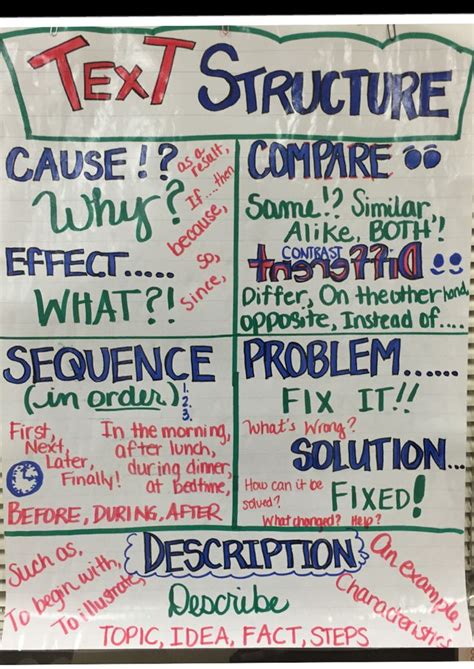 TEXT STRUCTURE
CAUSE!?
Why?
as a result,
If....then
because,
so,
since,
EFFECT.....
WHAT?!
COMPARE
Same!? Similar,
Alike, BOTH!,
CONTRAST
Different
Differ, On the other hand,
opposite, Instead of....
SEQUENCE
(in order)
1.
2.
3.
First,
Next,
Later,
Finally!
In the morning,
after lunch,
during dinner,
at bedtime,
BEFORE, DURING, AFTER
PROBLEM......
FIX IT!!
What's Wrong?
SOLUTION...
How can it be
solved?
FIXED!
What changed? Help?
DESCRIPTION
Such as,
To begin with,
To illustrate,
Describe
An example,
Characteristics
TOPIC, IDEA, FACT, STEPS